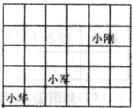 小刚
小军
小华